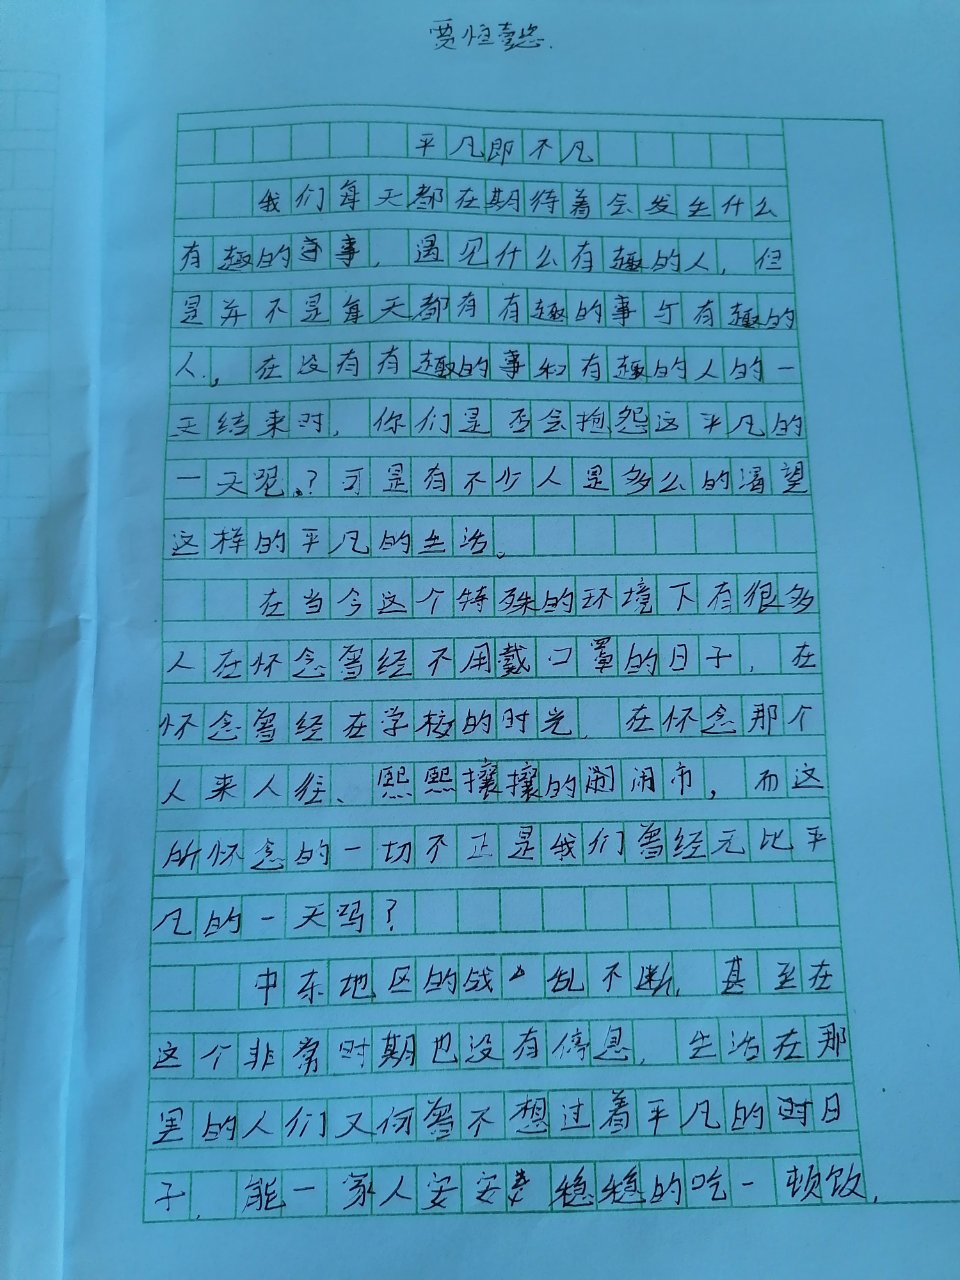 贾恒壹悠.
平凡即不凡
我们每天都在期待着会发生什么
有趣的事,遇见什么有趣的人,但
是并不是每天都有有趣的事与有趣的
人.,在没有有趣的事和有趣的人的一
天结束时,你们是否会抱怨这平凡的
一天呢.?可是有不少人是多么的渴望
这样的平凡的生活。
在当今这个特殊的环境下有很多
人在怀念曾经不用戴口罩的日子,在
怀念曾经在学校的时光,在怀念那个
人来人往、熙熙攘攘的闹市,而这
所怀念的一切不正是我们曾经无比平
凡的一天吗?
中东地区的战乱不断,甚至在
这个非常时期也没有停息,生活在那
里的人们又何曾不想过着平凡的时日
子,能一家人安安稳稳的吃一顿饭,